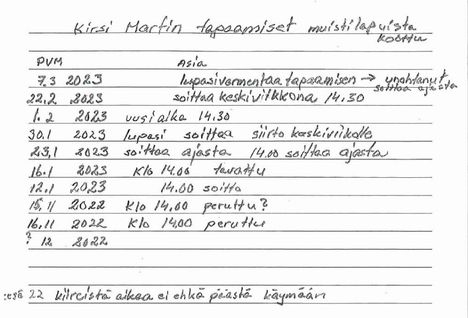 Kirsi Martin tapaamiset muistilapuista
koottu
PVM Asia
7.3 2023 lupasi varmentaa tapaamisen → unohtanut
soittaa ajasta
22.2 2023 soittaa keskivikkona 14.30
1.2 2023 uusi aika 14.30
30.1 2023 lupasi soittaa siirto keskiviikolle
23.1 2023 soittaa ajasta 14.00 soittaa ajasta
16.1 2023 Klo 14.00 tavattu
12.1 2023 14.00 soitto
15.11 2022 Klo 14.00 peruttu?
16.11 2022 Klo 14.00 peruttu
? 12 2022
22 kiireistä aikaa ei ehkä päästä käymään